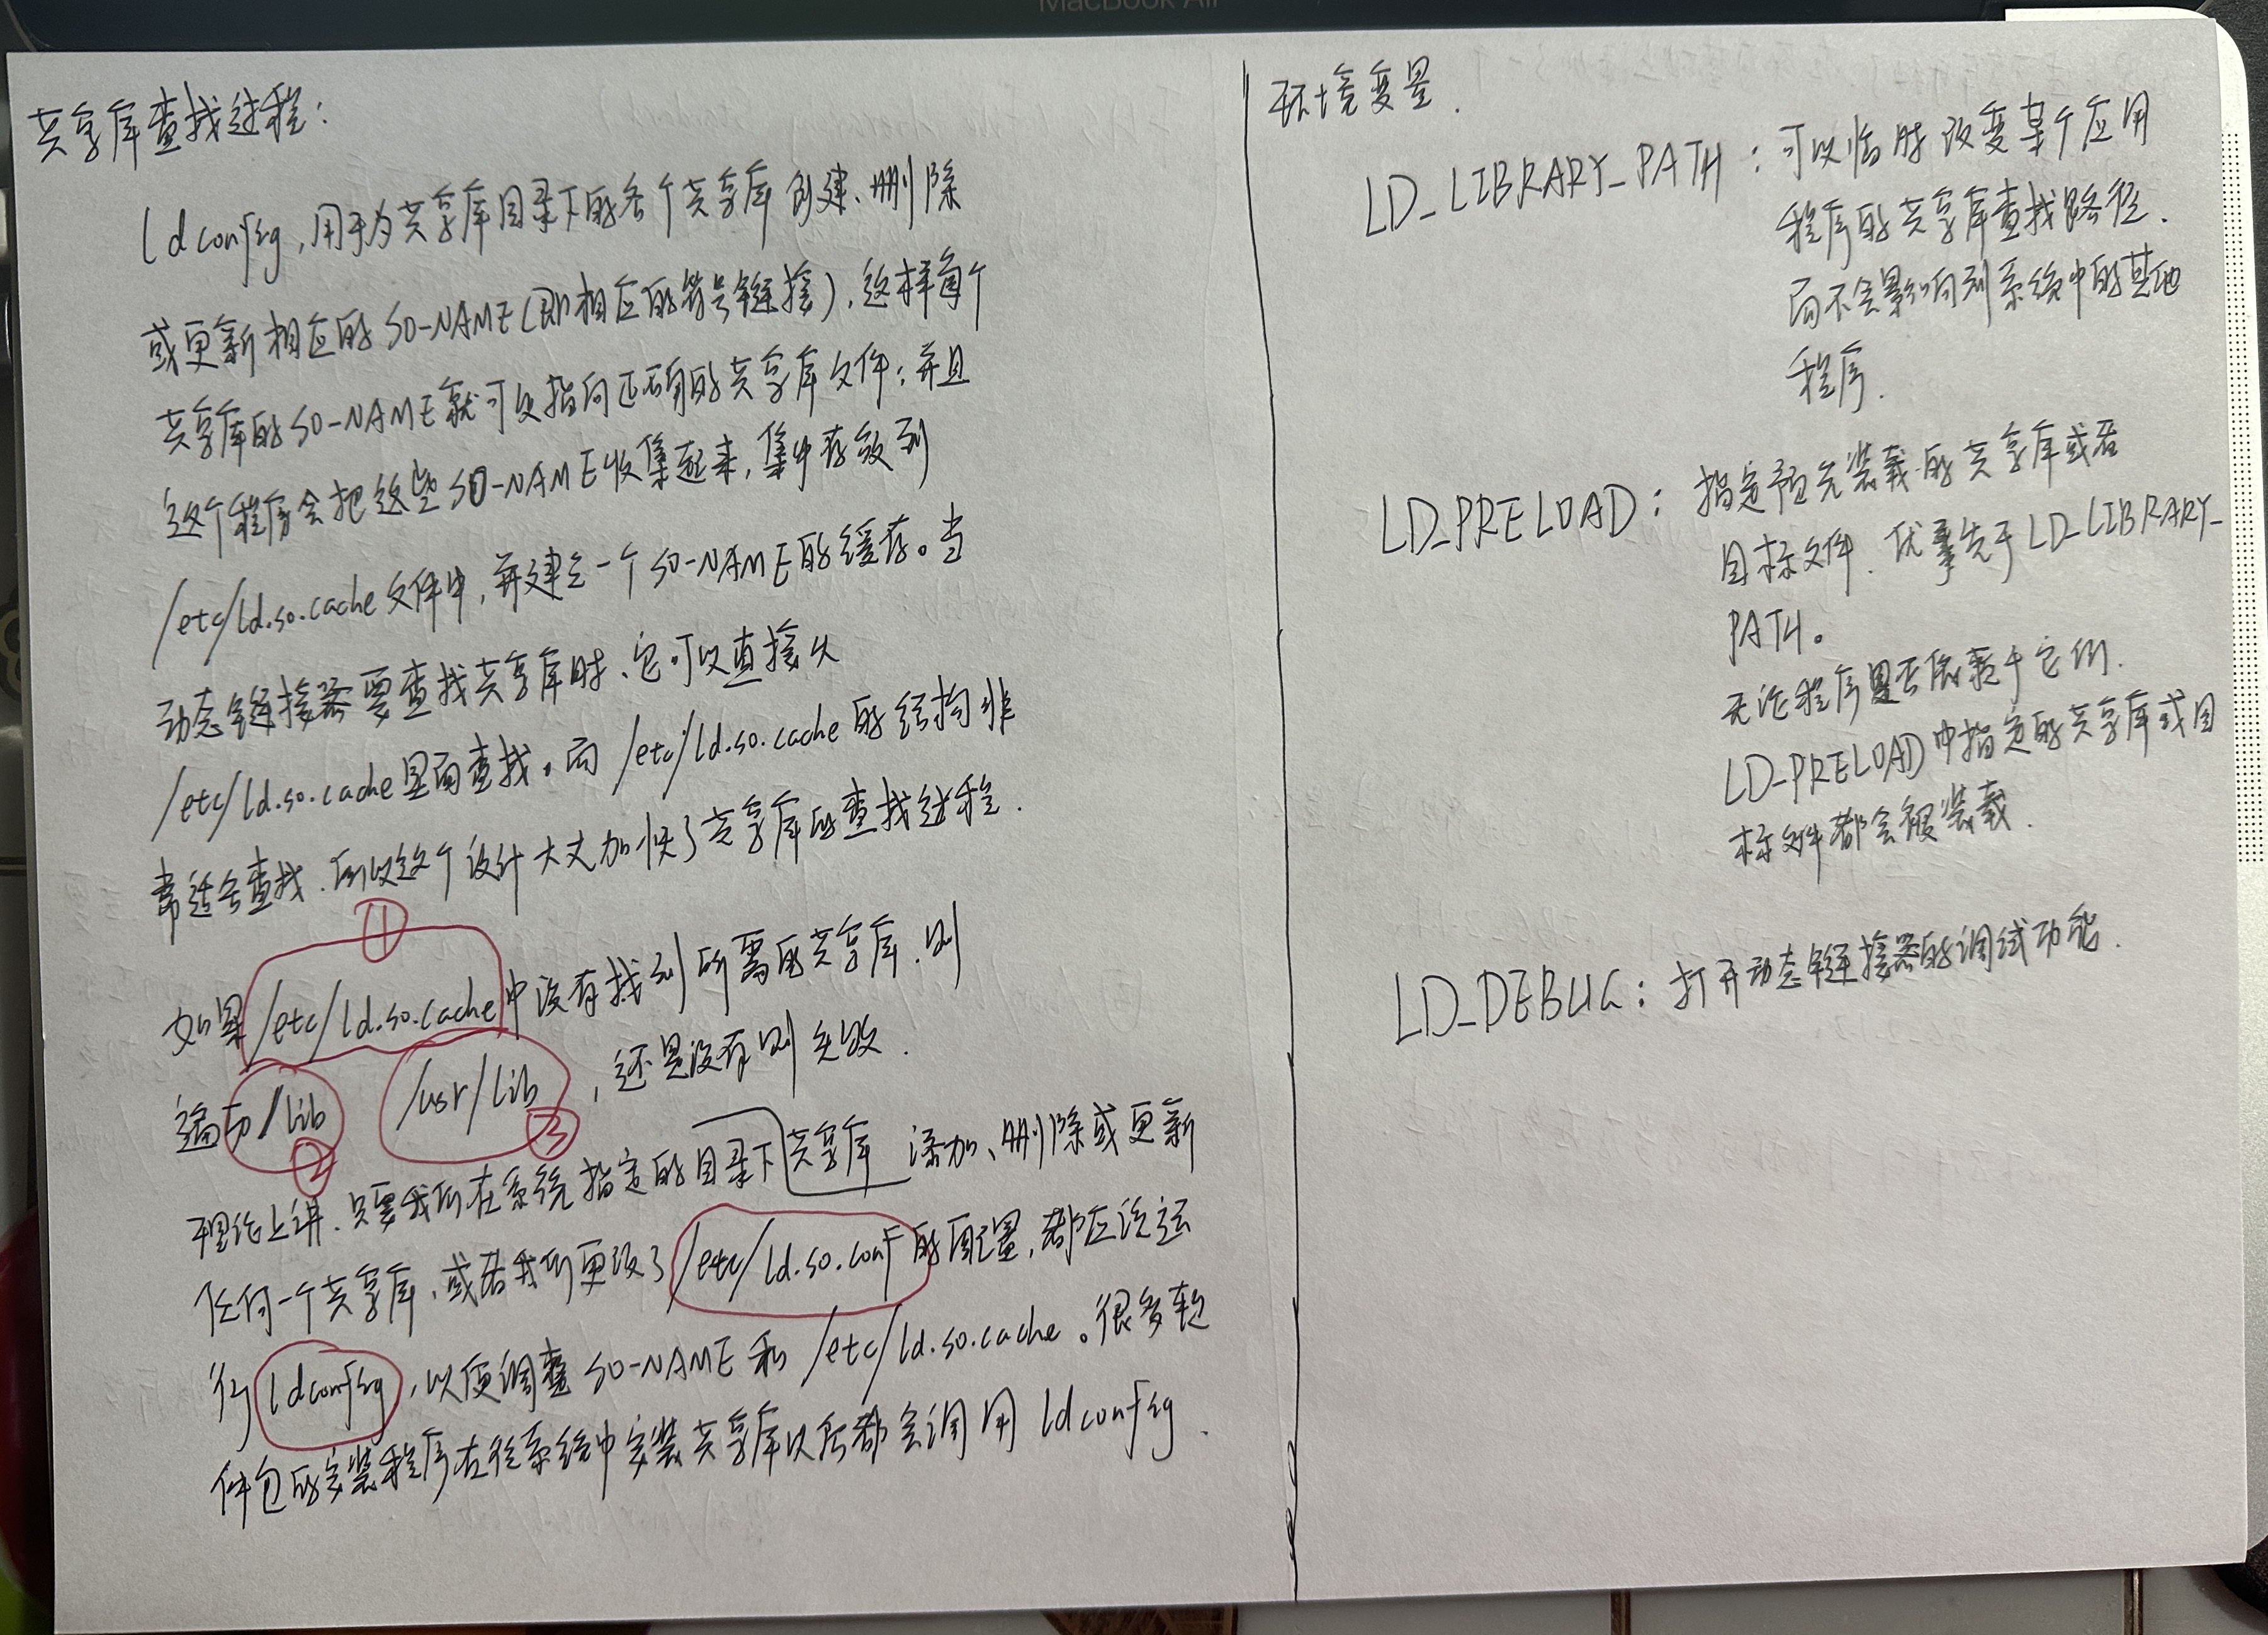 MacBook Air
共享库查找过程:
ldconfig,用于为共享库目录下的各个共享库创建、删除
或更新相应的SO-NAME(即相应的符号链接),这样每个
共享库的SO-NAME就可以指向正确的共享库文件;并且
这个程序会把这些SO-NAME收集起来,集中存放到
/etc/ld.so.cache文件中,并建立一个SO-NAME的缓存。当
动态链接器要查找共享库时、它可以直接从
/etc/ld.so.cache里面查找。而/etc/ld.so.cache的结构非
常适合查找.所以这个设计大大加快了共享库的查找过程.
①
如果/etc/ld.so.cache中没有找到所需的共享库.则
遍历/lib /usr/lib,还是没有则失败.
② ③
理论上讲.只要我们在系统指定的目录下共享库 添加、删除或更新
任何一个共享库,或者我们更改了/etc/ld.so.conf的配置,都应该运
行ldconfig,以便调整SO-NAME和/etc/ld.so.cache。很多软
件包的安装程序在往系统中安装共享库以后都会调用ldconfig.
环境变量.
LD_LIBRARY_PATH:可以临时改变某个应用
程序的共享库查找路径.
而不会影响到系统中的其他
程序.
LD_PRELOAD:指定预先装载的共享库或者
目标文件.优先于LD_LIBRARY_
PATH。
无论程序是否依赖于它们.
LD_PRELOAD中指定的共享库或目
标文件都会被装载.
LD_DEBUG:打开动态链接器的调试功能.